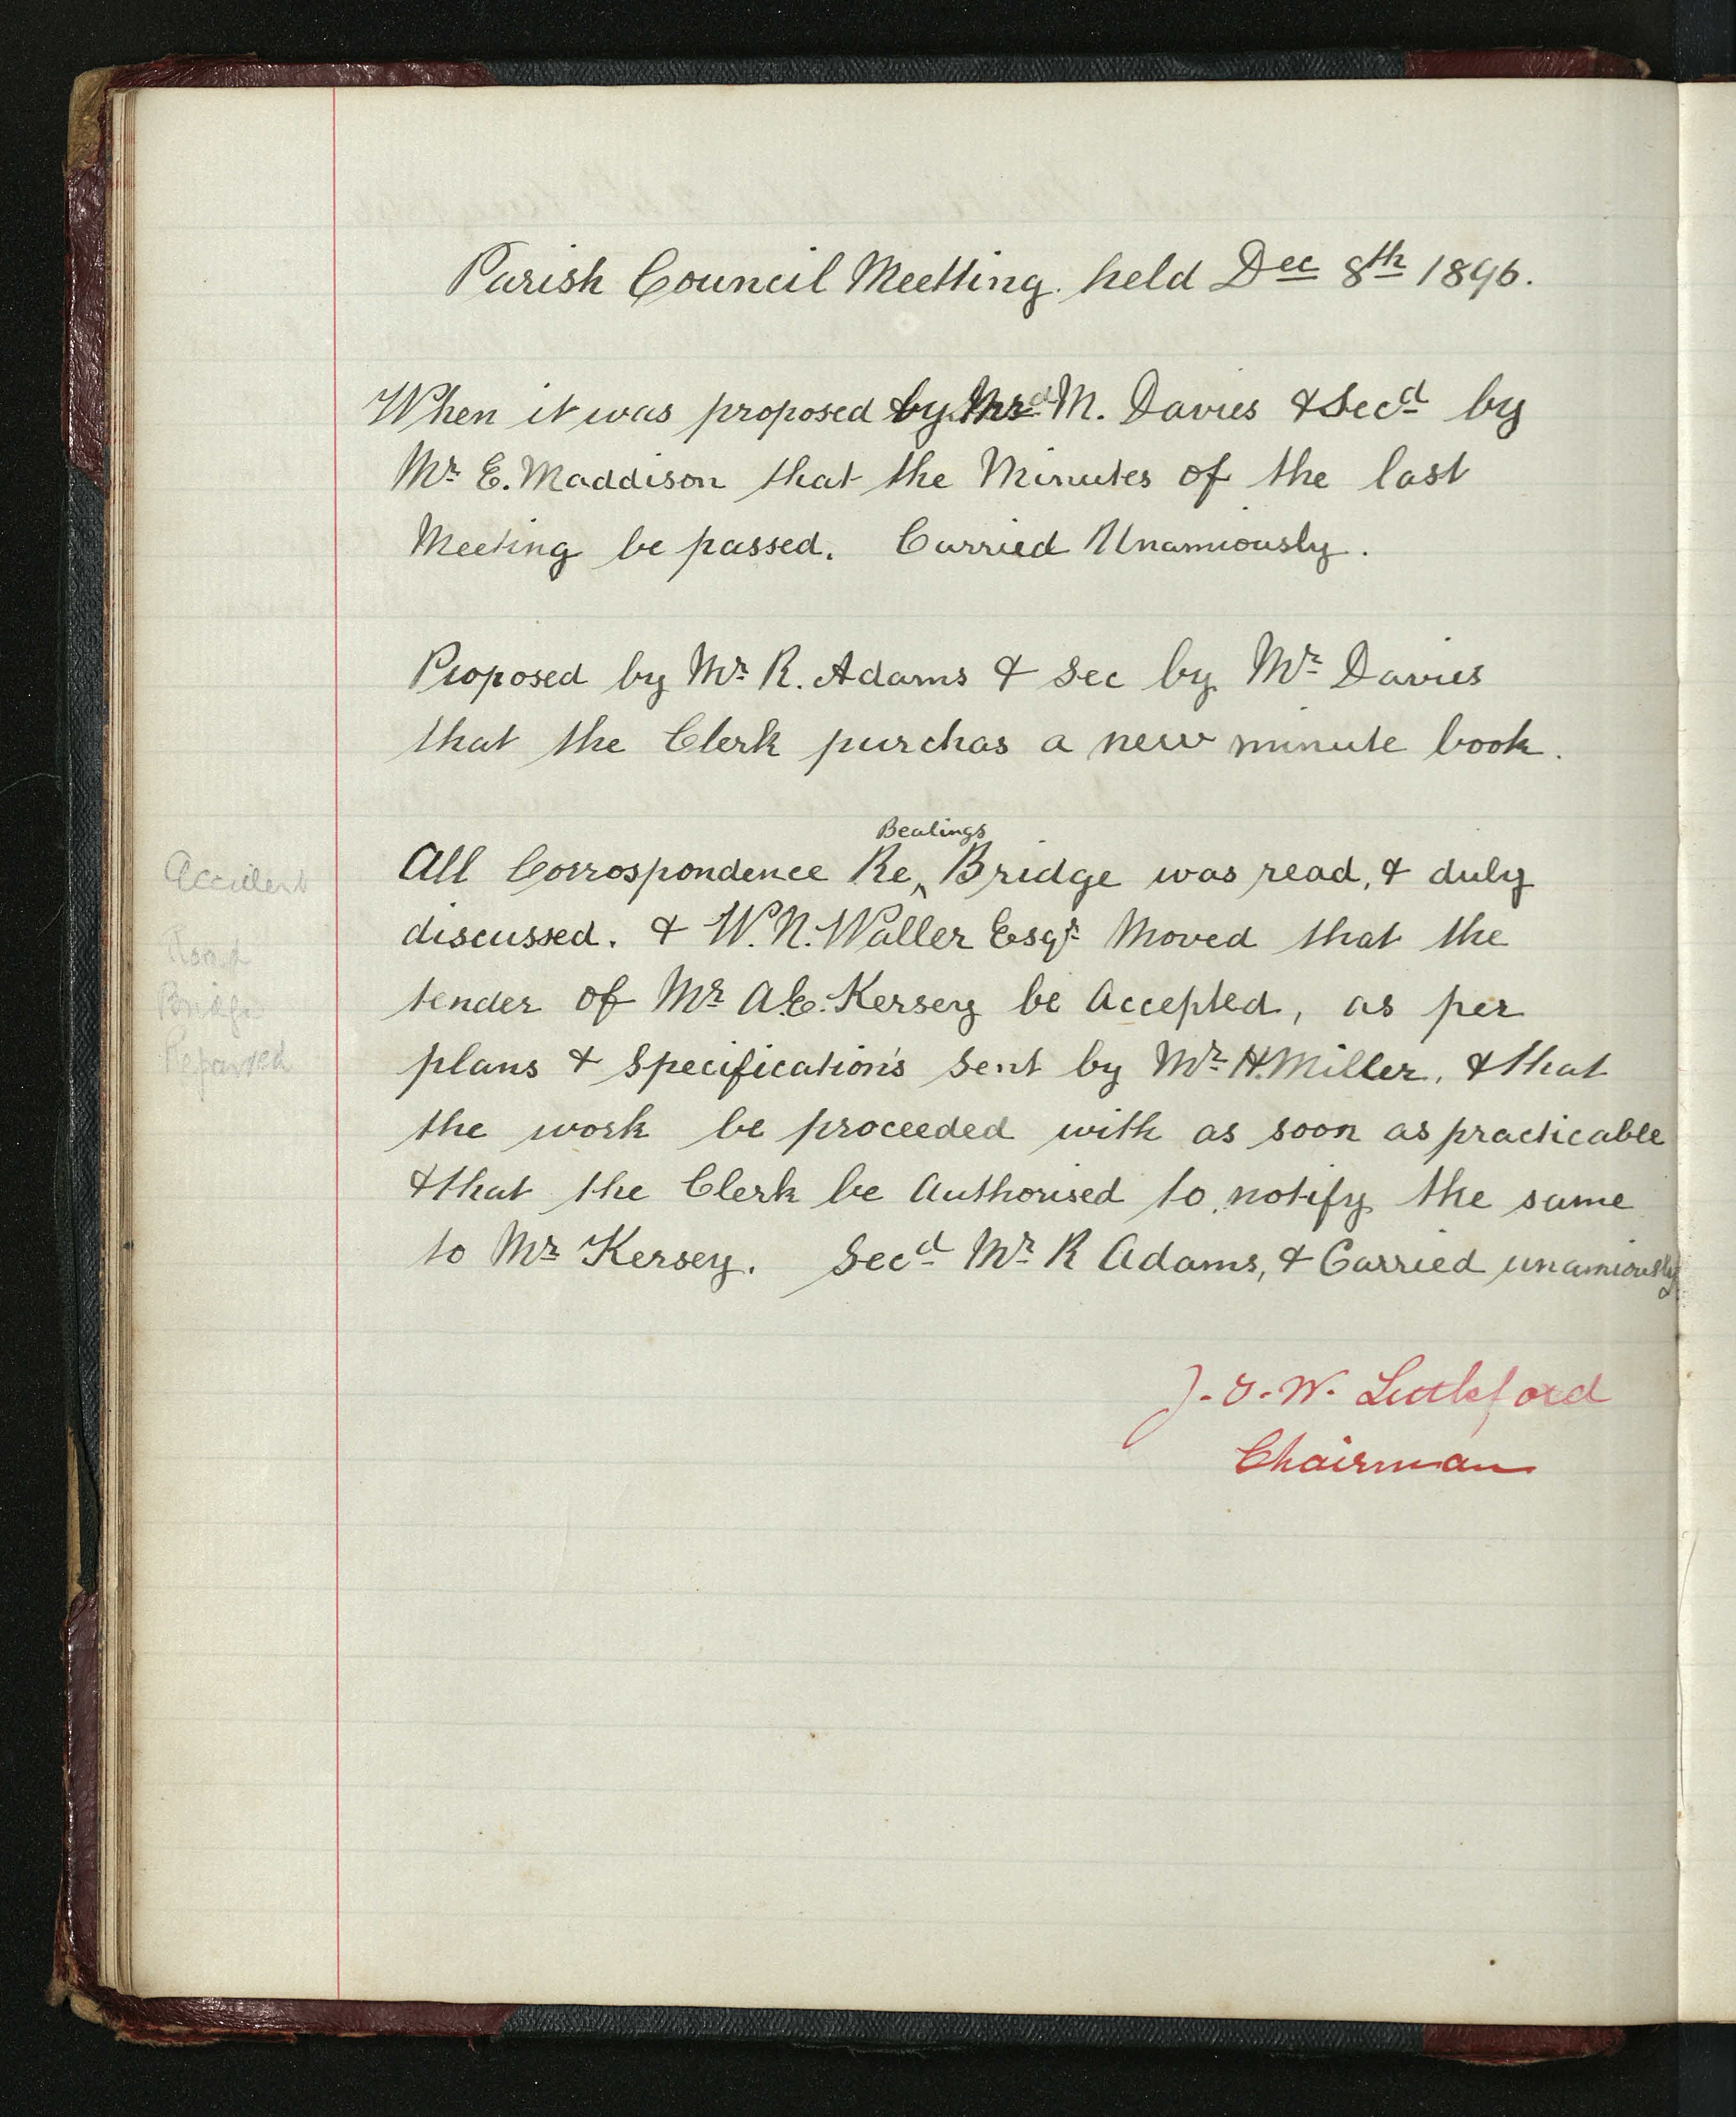 Parish Council Meetting. held Dec 8th 1896.
When it was proposed by Mr M. Davies & Secd by
Mr E. Maddison that the Minutes of the last
Meeting be passed. Carried Unamiously.
Proposed by Mr R. Adams & Sec by Mr Davies
that the Clerk purchas a new minute book.
Bealings
All Corrospondence Re, Bridge was read, & duly
discussed. & W. N. Waller Esqr Moved that the
tender of Mr A. E. Kersey be Accepted, as per
plans & Specification's Sent by Mr H. Miller, & that
the work be proceeded with as soon as practicable
& that the Clerk be Authorised to notify the same
to Mr Kersey. Secd Mr R Adams, & Carried unamiously
Accident
Bridge
Repaired
J. W. Littleford
Chairman